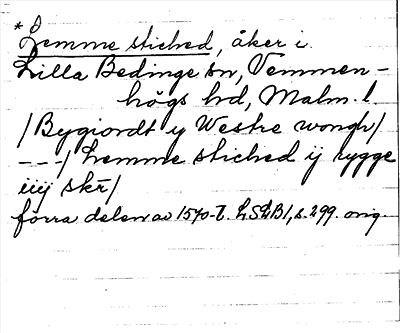 * Lemme stiched, åker i
Lilla Bedinge sn, Vemmen-
högs hd, Malm. l.
/ Bygiordt y Westre wongh /
--- / Lemme stiched ij rygge
iiij skr̄ /
förra delen av 1570-t. LSLB1, s. 299. orig.